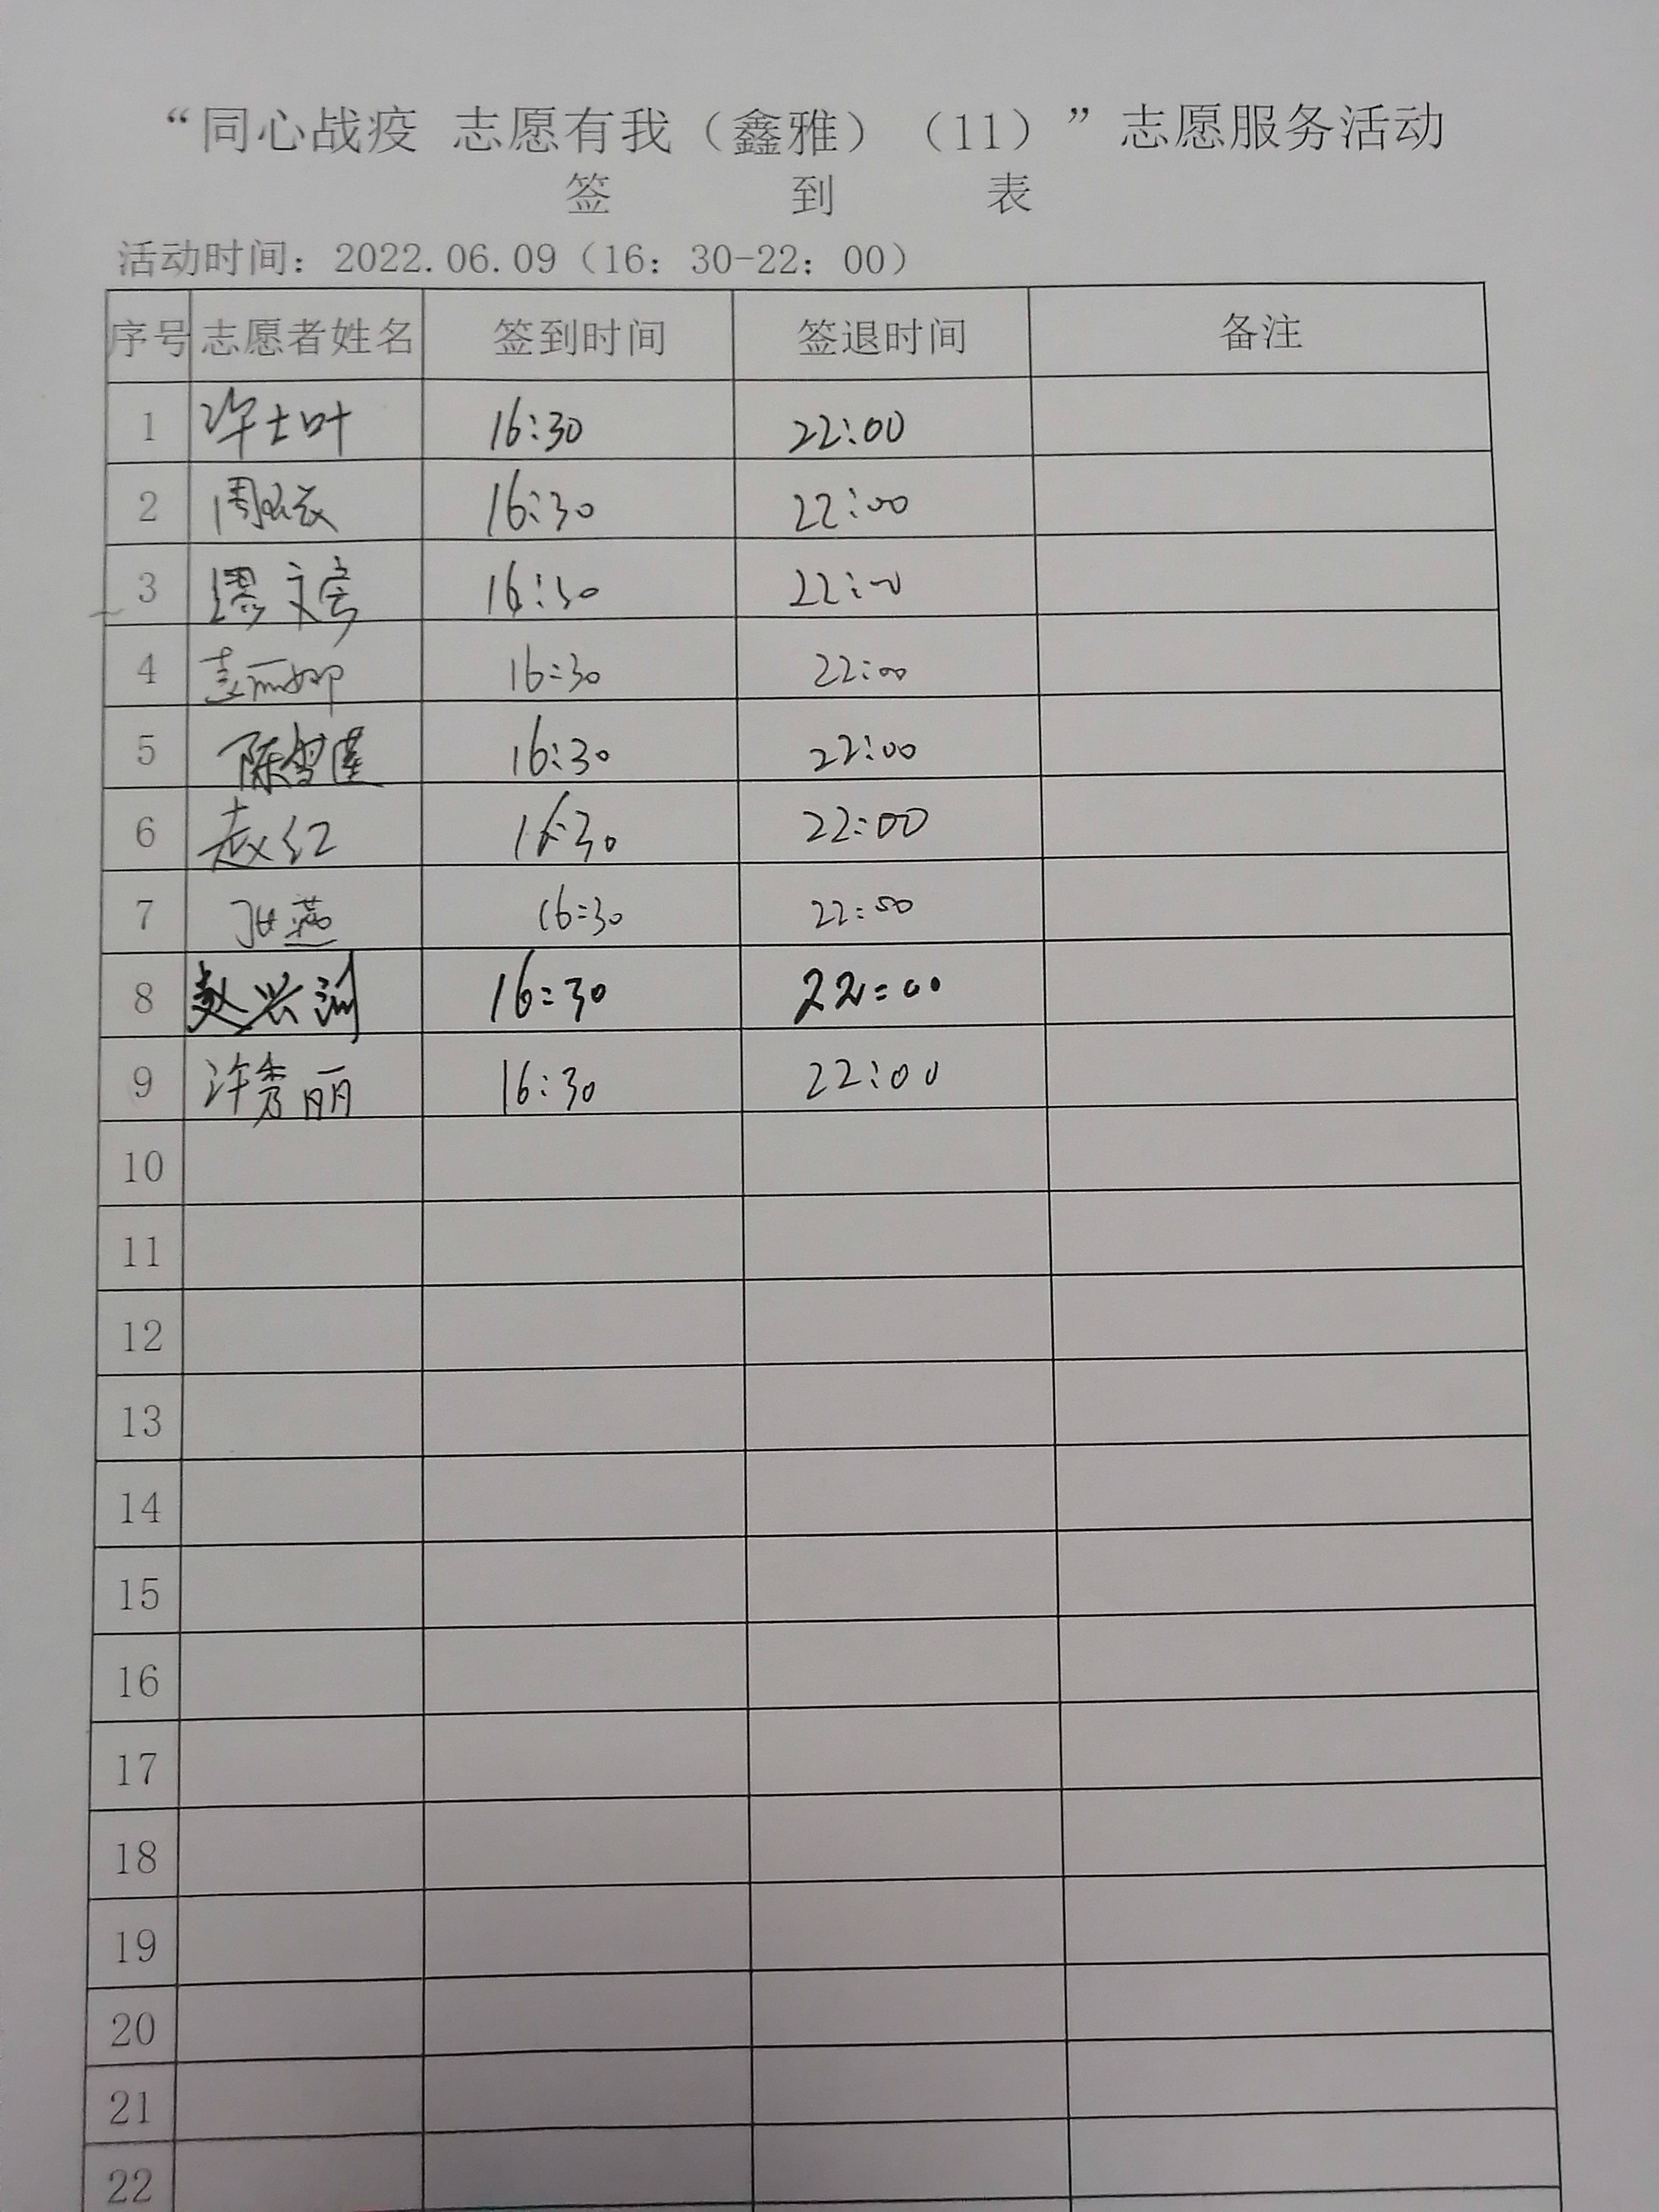 “同心战疫 志愿有我（鑫雅）（11）”志愿服务活动
签 到 表
活动时间：2022.06.09（16：30-22：00）
序号 志愿者姓名 签到时间 签退时间 备注
1 许士叶 16:30 22:00
2 周 16:30 22:00
3 缪文 16:30 22:00
4 袁丽娜 16:30 22:00
5 陈雪莲 16:30 22:00
6 赵红 16:30 22:00
7 张燕 16:30 22:00
8 赵兴润 16:30 22:00
9 许秀丽 16:30 22:00
10
11
12
13
14
15
16
17
18
19
20
21
22